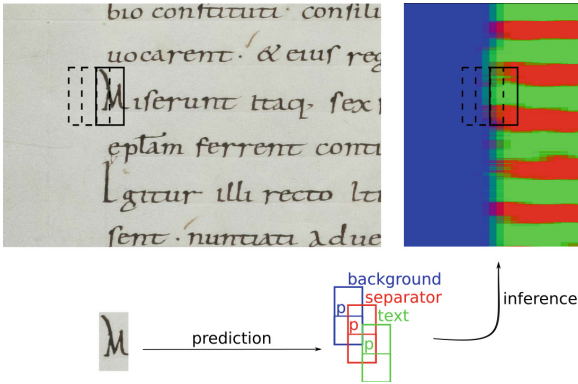 bio constituti· consilu
uocarent· & eius reg
Miserunt itaq; sex
eplam ferrent conti
Igitur illi recto iti
sent· nuntiati adue
background
separator
text
p
p
p
inference
prediction
M